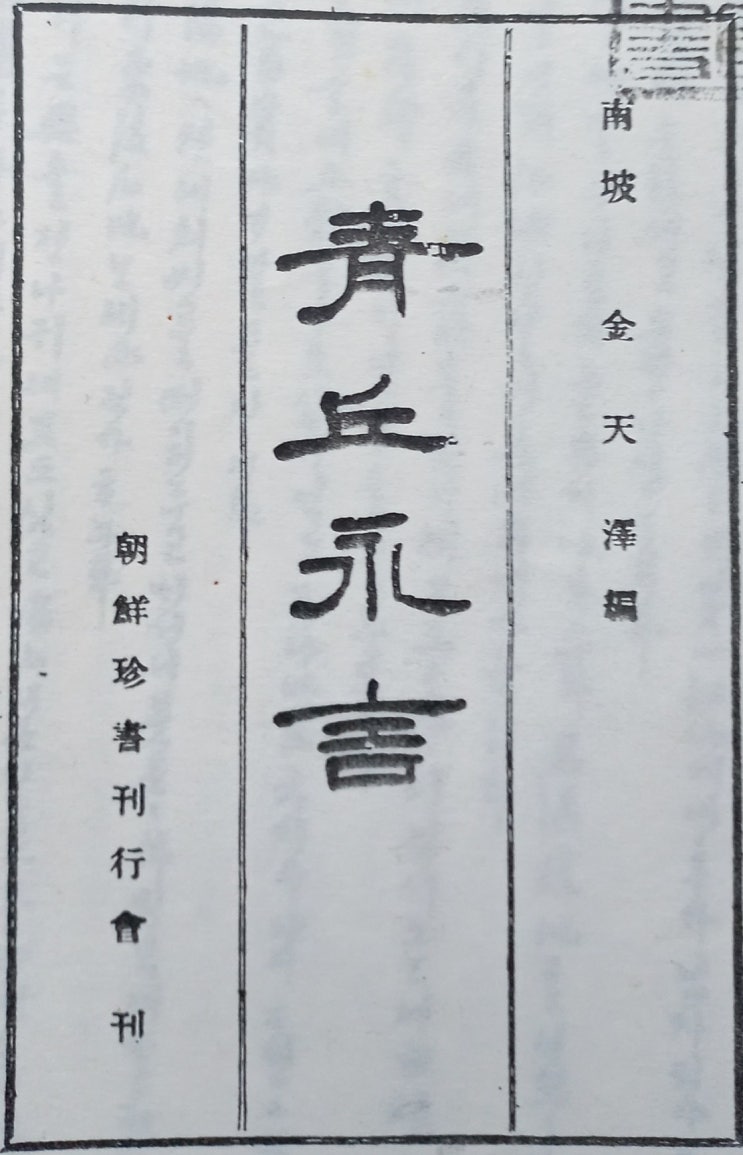 南坡 金天澤編
靑丘永言
朝鮮珍書刊行會 刊